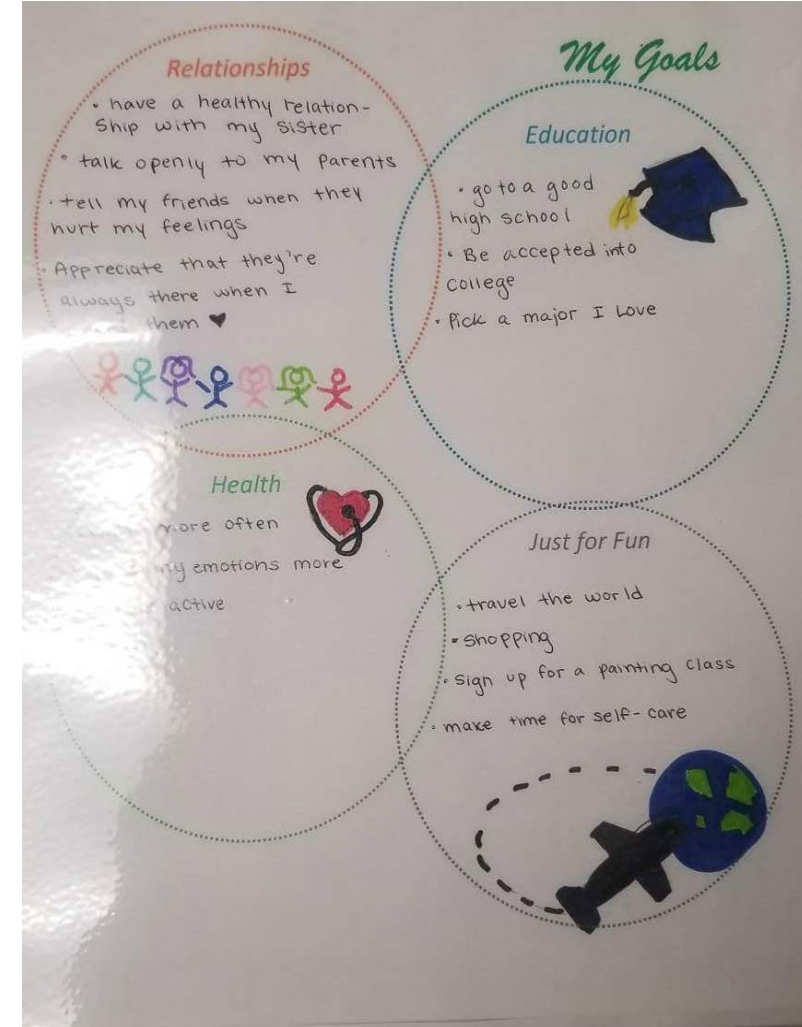 My Goals
Relationships
• have a healthy relation-
ship with my sister
• talk openly to my parents
• tell my friends when they
hurt my feelings
• Appreciate that they're
always there when I
them ♥
Education
• go to a good
high school
• Be accepted into
college
• Pick a major I Love
Health
more often
my emotions more
active
Just for Fun
• travel the world
• shopping
• sign up for a painting class
• make time for self-care